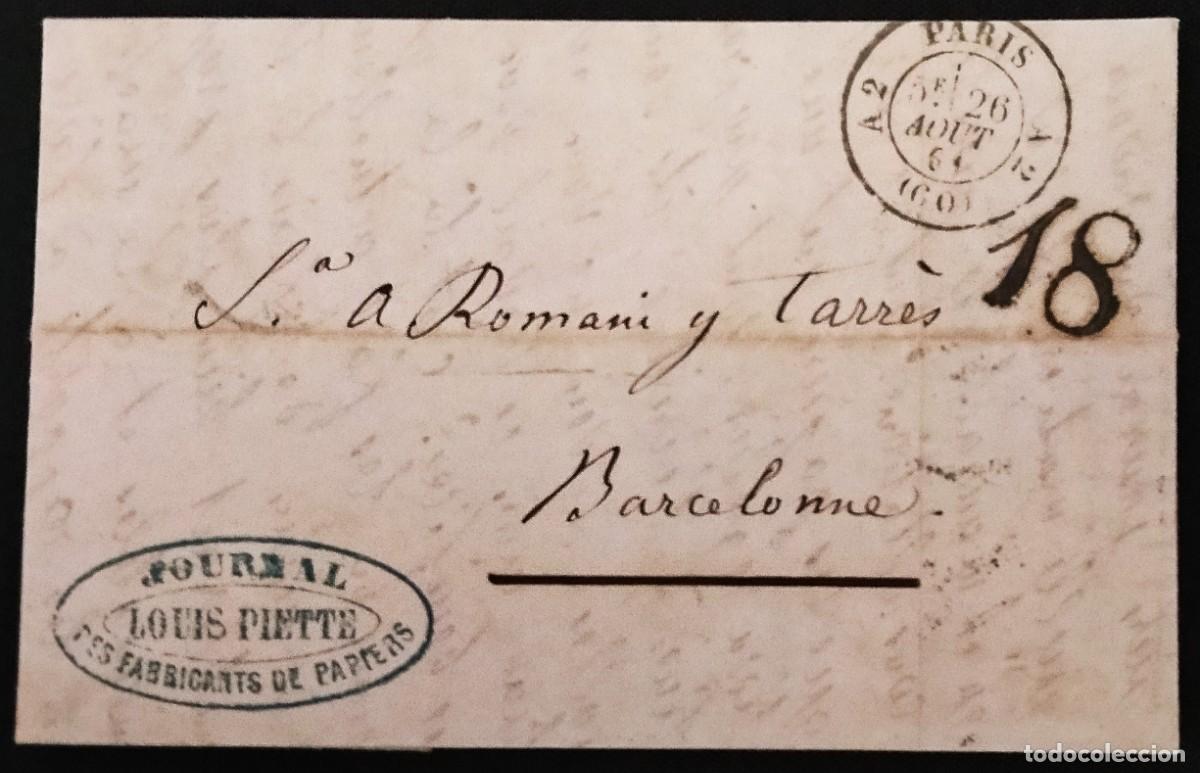 PARIS
A2 A2
5E 26
AOUT
61
(60)
18
S.a A Romani y Tarrès
Barcelonne.
JOURNAL
LOUIS PIETTE
DES FABRICANTS DE PAPIERS
todocoleccion